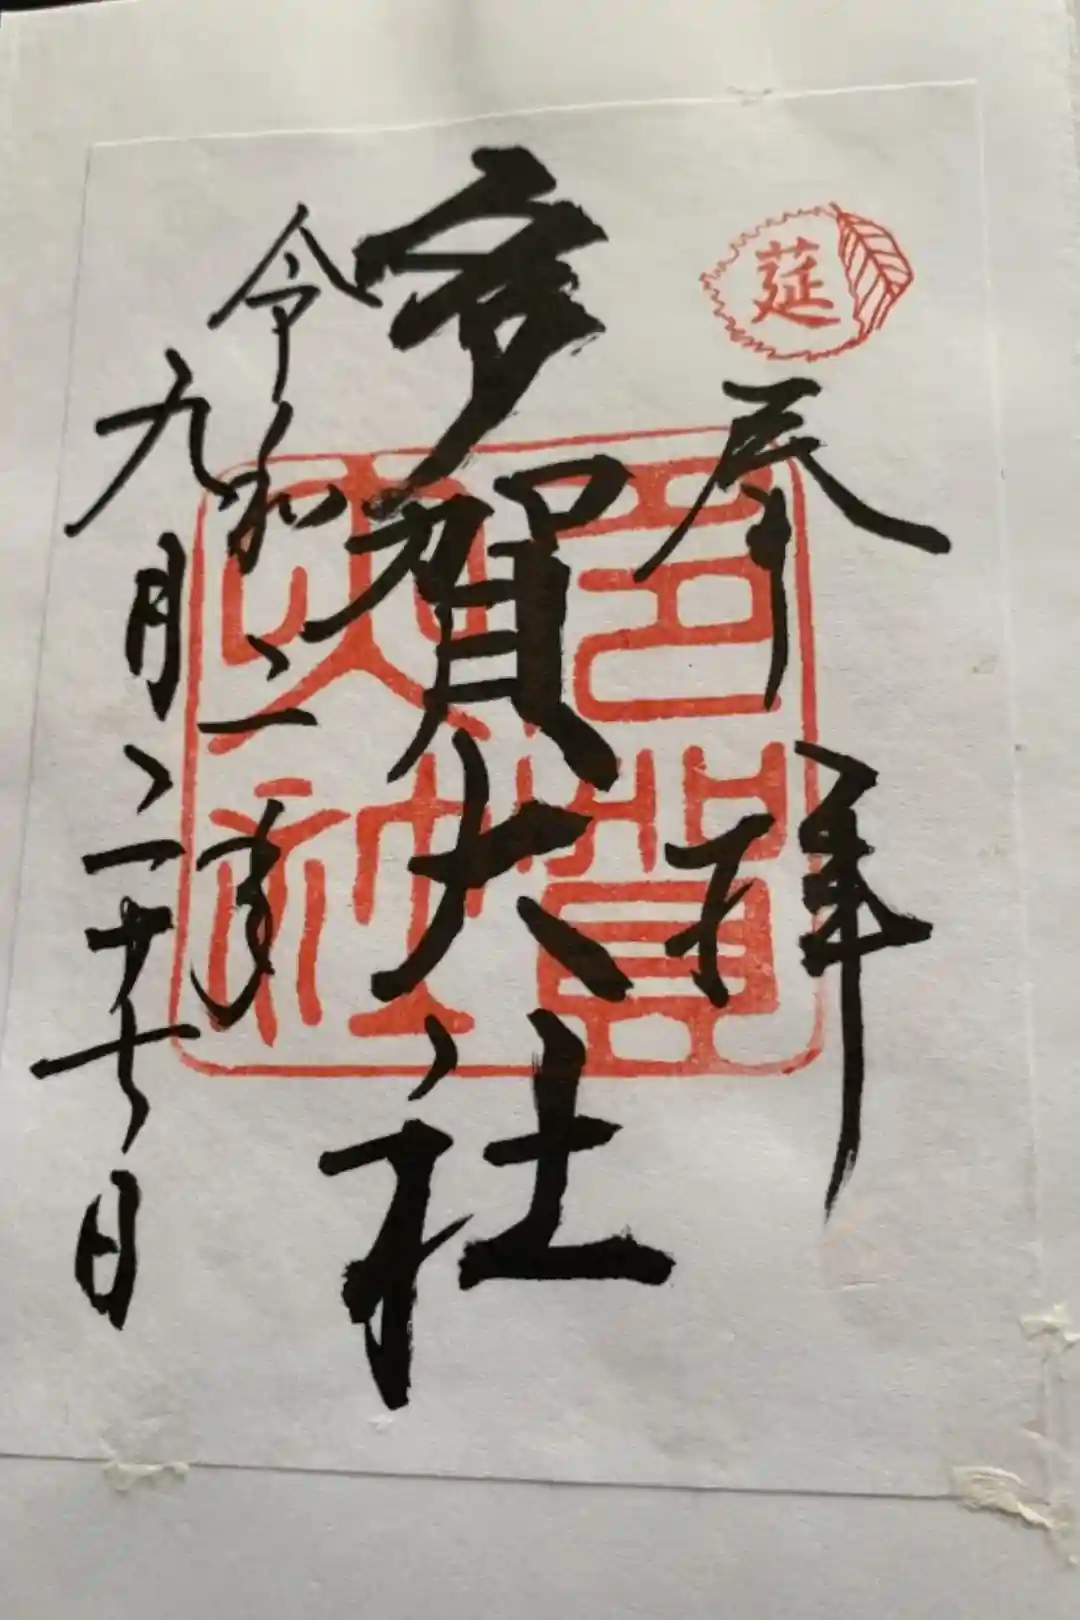 莚
奉拝
多賀大社
多賀大社
令和二年
九月二十七日